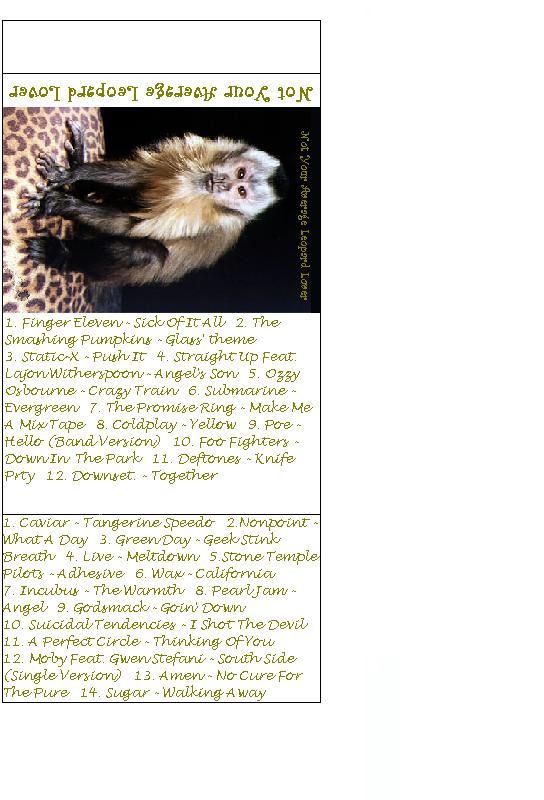 Not Your Average Leopard Lover
Not Your Average Leopard Lover
1. Finger Eleven ~ Sick Of It All 2. The
Smashing Pumpkins ~ Glass' theme
3. Static-X ~ Push It 4. Straight Up Feat.
Lajon Witherspoon ~ Angel's Son 5. Ozzy
Osbourne ~ Crazy Train 6. Submarine ~
Evergreen 7. The Promise Ring ~ Make Me
A Mix Tape 8. Coldplay ~ Yellow 9. Poe ~
Hello (Band Version) 10. Foo Fighters ~
Down In The Park 11. Deftones ~ Knife
Prty 12. Downset. ~ Together
1. Caviar ~ Tangerine Speedo 2. Nonpoint ~
What A Day 3. Green Day ~ Geek Stink
Breath 4. Live ~ Meltdown 5. Stone Temple
Pilots ~ Adhesive 6. Wax ~ California
7. Incubus ~ The Warmth 8. Pearl Jam ~
Angel 9. Godsmack ~ Goin' Down
10. Suicidal Tendencies ~ I Shot The Devil
11. A Perfect Circle ~ Thinking Of You
12. Moby Feat. Gwen Stefani ~ South Side
(Single Version) 13. Amen ~ No Cure For
The Pure 14. Sugar ~ Walking Away